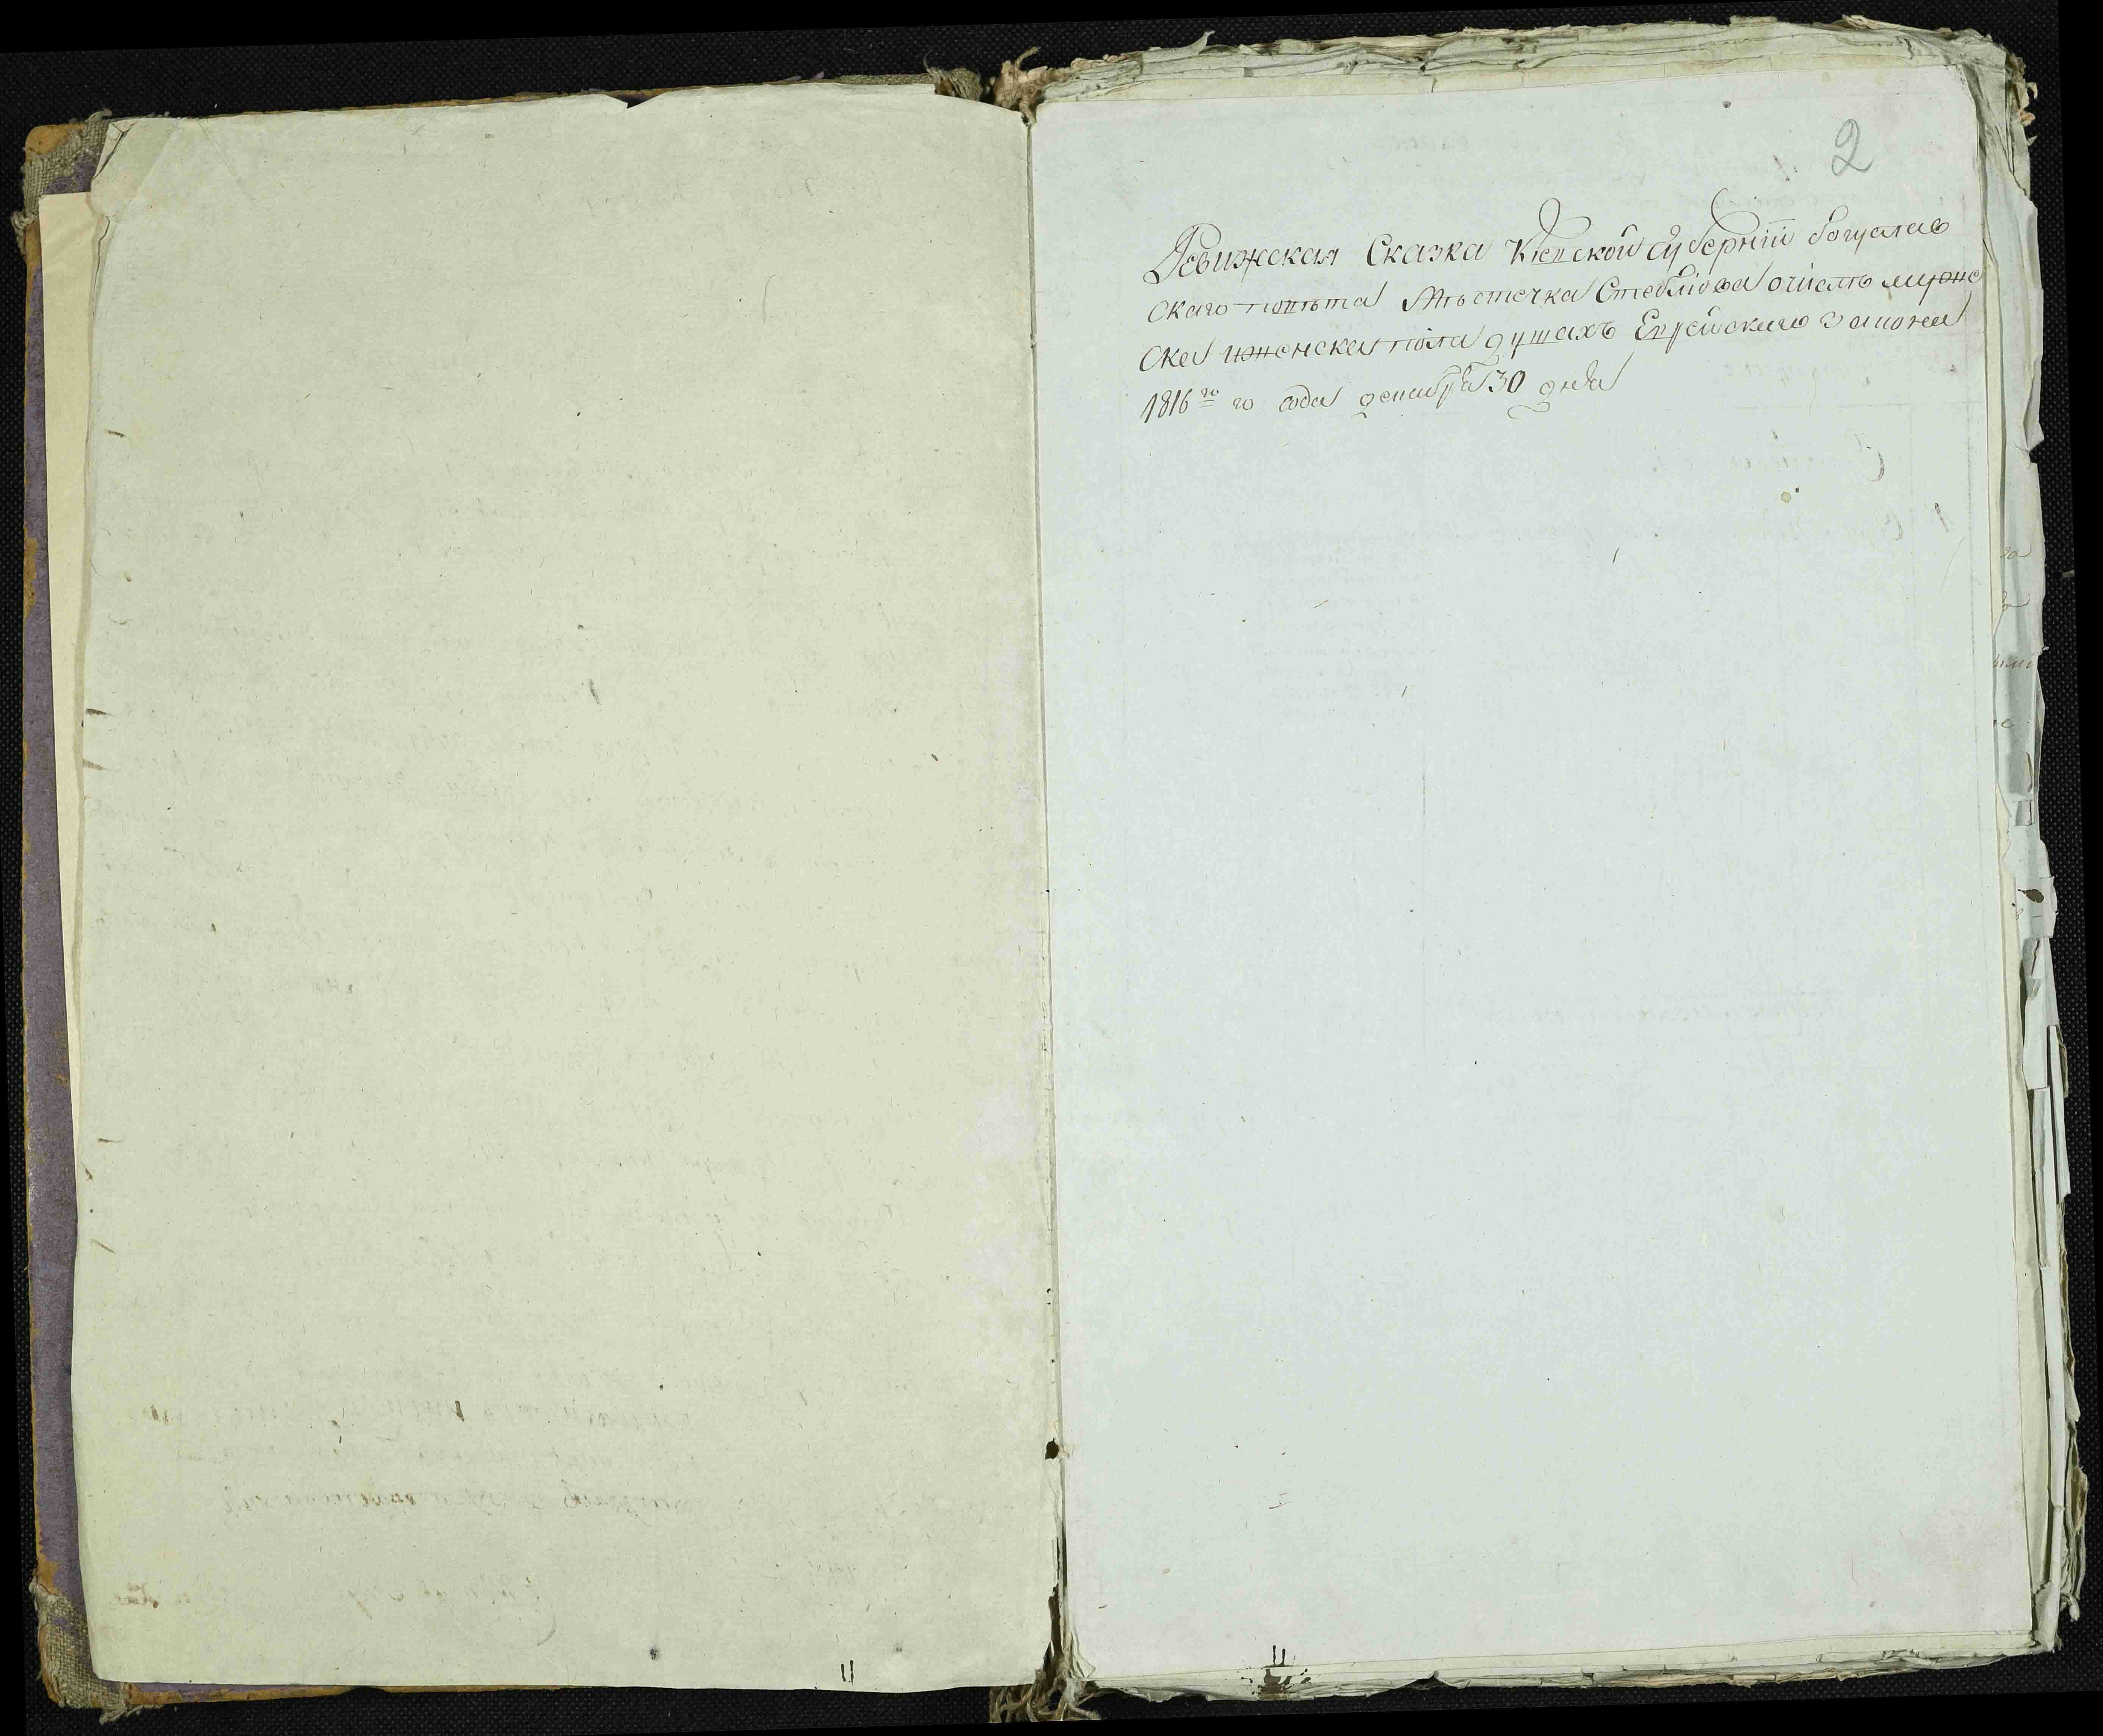 2
Ревижская Сказка Кіевской губерніи богуслав
скаго повѣта Мѣстечка Стеблiова очислѣ мужес
ска иженска пола душахъ Еврейскаго закона
1816го го года декабря 30 дня